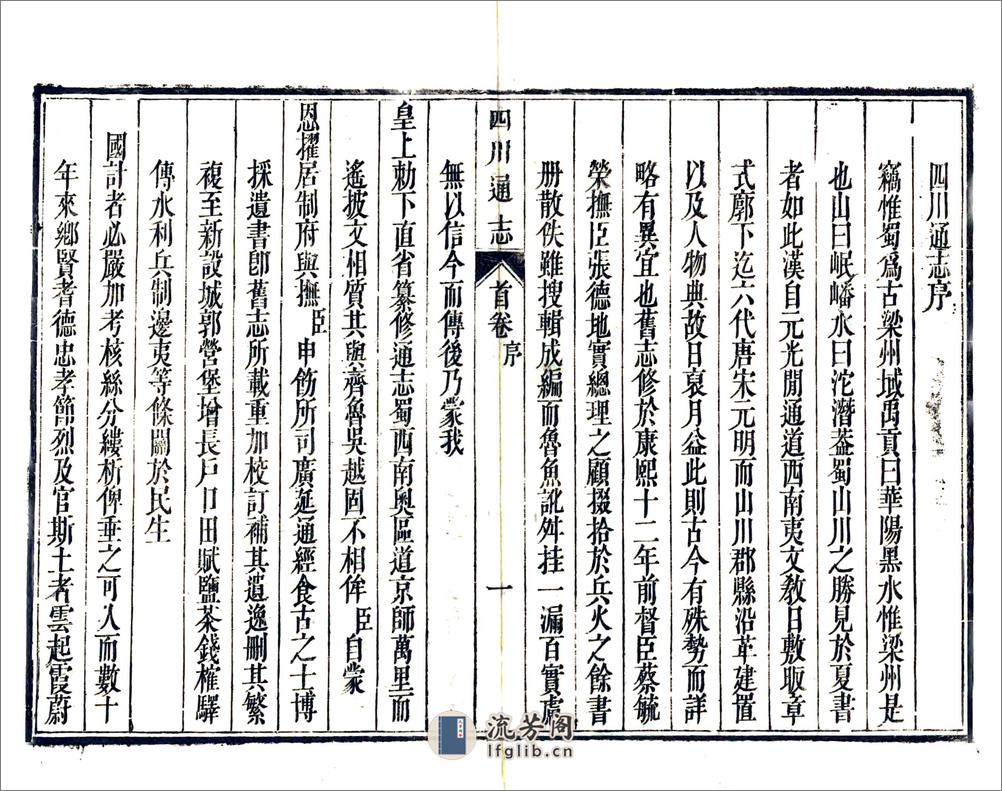 四川通志序
竊惟蜀爲古梁州域禹貢曰華陽黑水惟梁州是
也山曰岷嶓水曰沱潛葢蜀山川之勝見於夏書
者如此漢自元光閒通道西南夷文敎日敷販章
式廓下迄六代唐宋元明而山川郡縣沿革建置
以及人物典故日裒月益此則古今有殊勢而詳
略有異宜也舊志修於康熙十二年前督臣蔡毓
榮撫臣張德地實總理之顧掇拾於兵火之餘書
册散佚雖搜輯成編而魯魚訛舛挂一漏百實處
無以信今而傳後乃蒙我
皇上勅下直省纂修通志蜀西南奧區道京師萬里而
遙披文相質其與齊魯吳越固不相侔臣自蒙
恩擢居制府與撫臣申飭所司廣延通經食古之士博
採遺書卽舊志所載重加校訂補其遺逸刪其繁
複至新設城郭營堡增長戶口田賦鹽茶錢榷驛
傳水利兵制邊夷等條關於民生
國計者必嚴加考核絲分縷析俾垂之可久而數十
年來鄉賢耆德忠孝節烈及官斯土者雲起霞蔚
四川通志
首卷
序
一
流芳阁
lfglib.cn